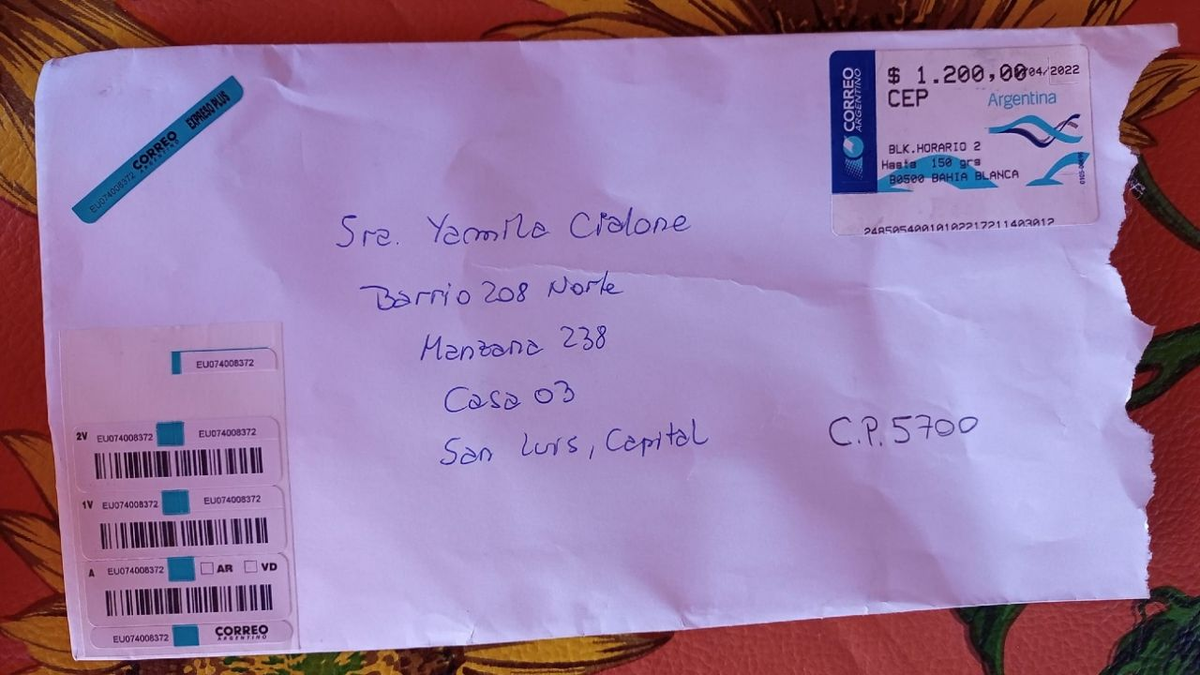 EU074008372 CORREO ARGENTINO EXPRESO PLUS
CORREO ARGENTINO
$ 1.200,00 04/2022
CEP
Argentina
BLK.HORARIO 2
Hasta 150 grs
B0500 BAHIA BLANCA
2485054001010221721140301​2
Sra. Yamila Cialone
Barrio 208 Norte
Manzana 238
Casa 03
San Luis, Capital
C.P. 5700
EU074008372
2V EU074008372 EU074008372
1V EU074008372 EU074008372
A EU074008372 AR VD
EU074008372 CORREO ARGENTINO